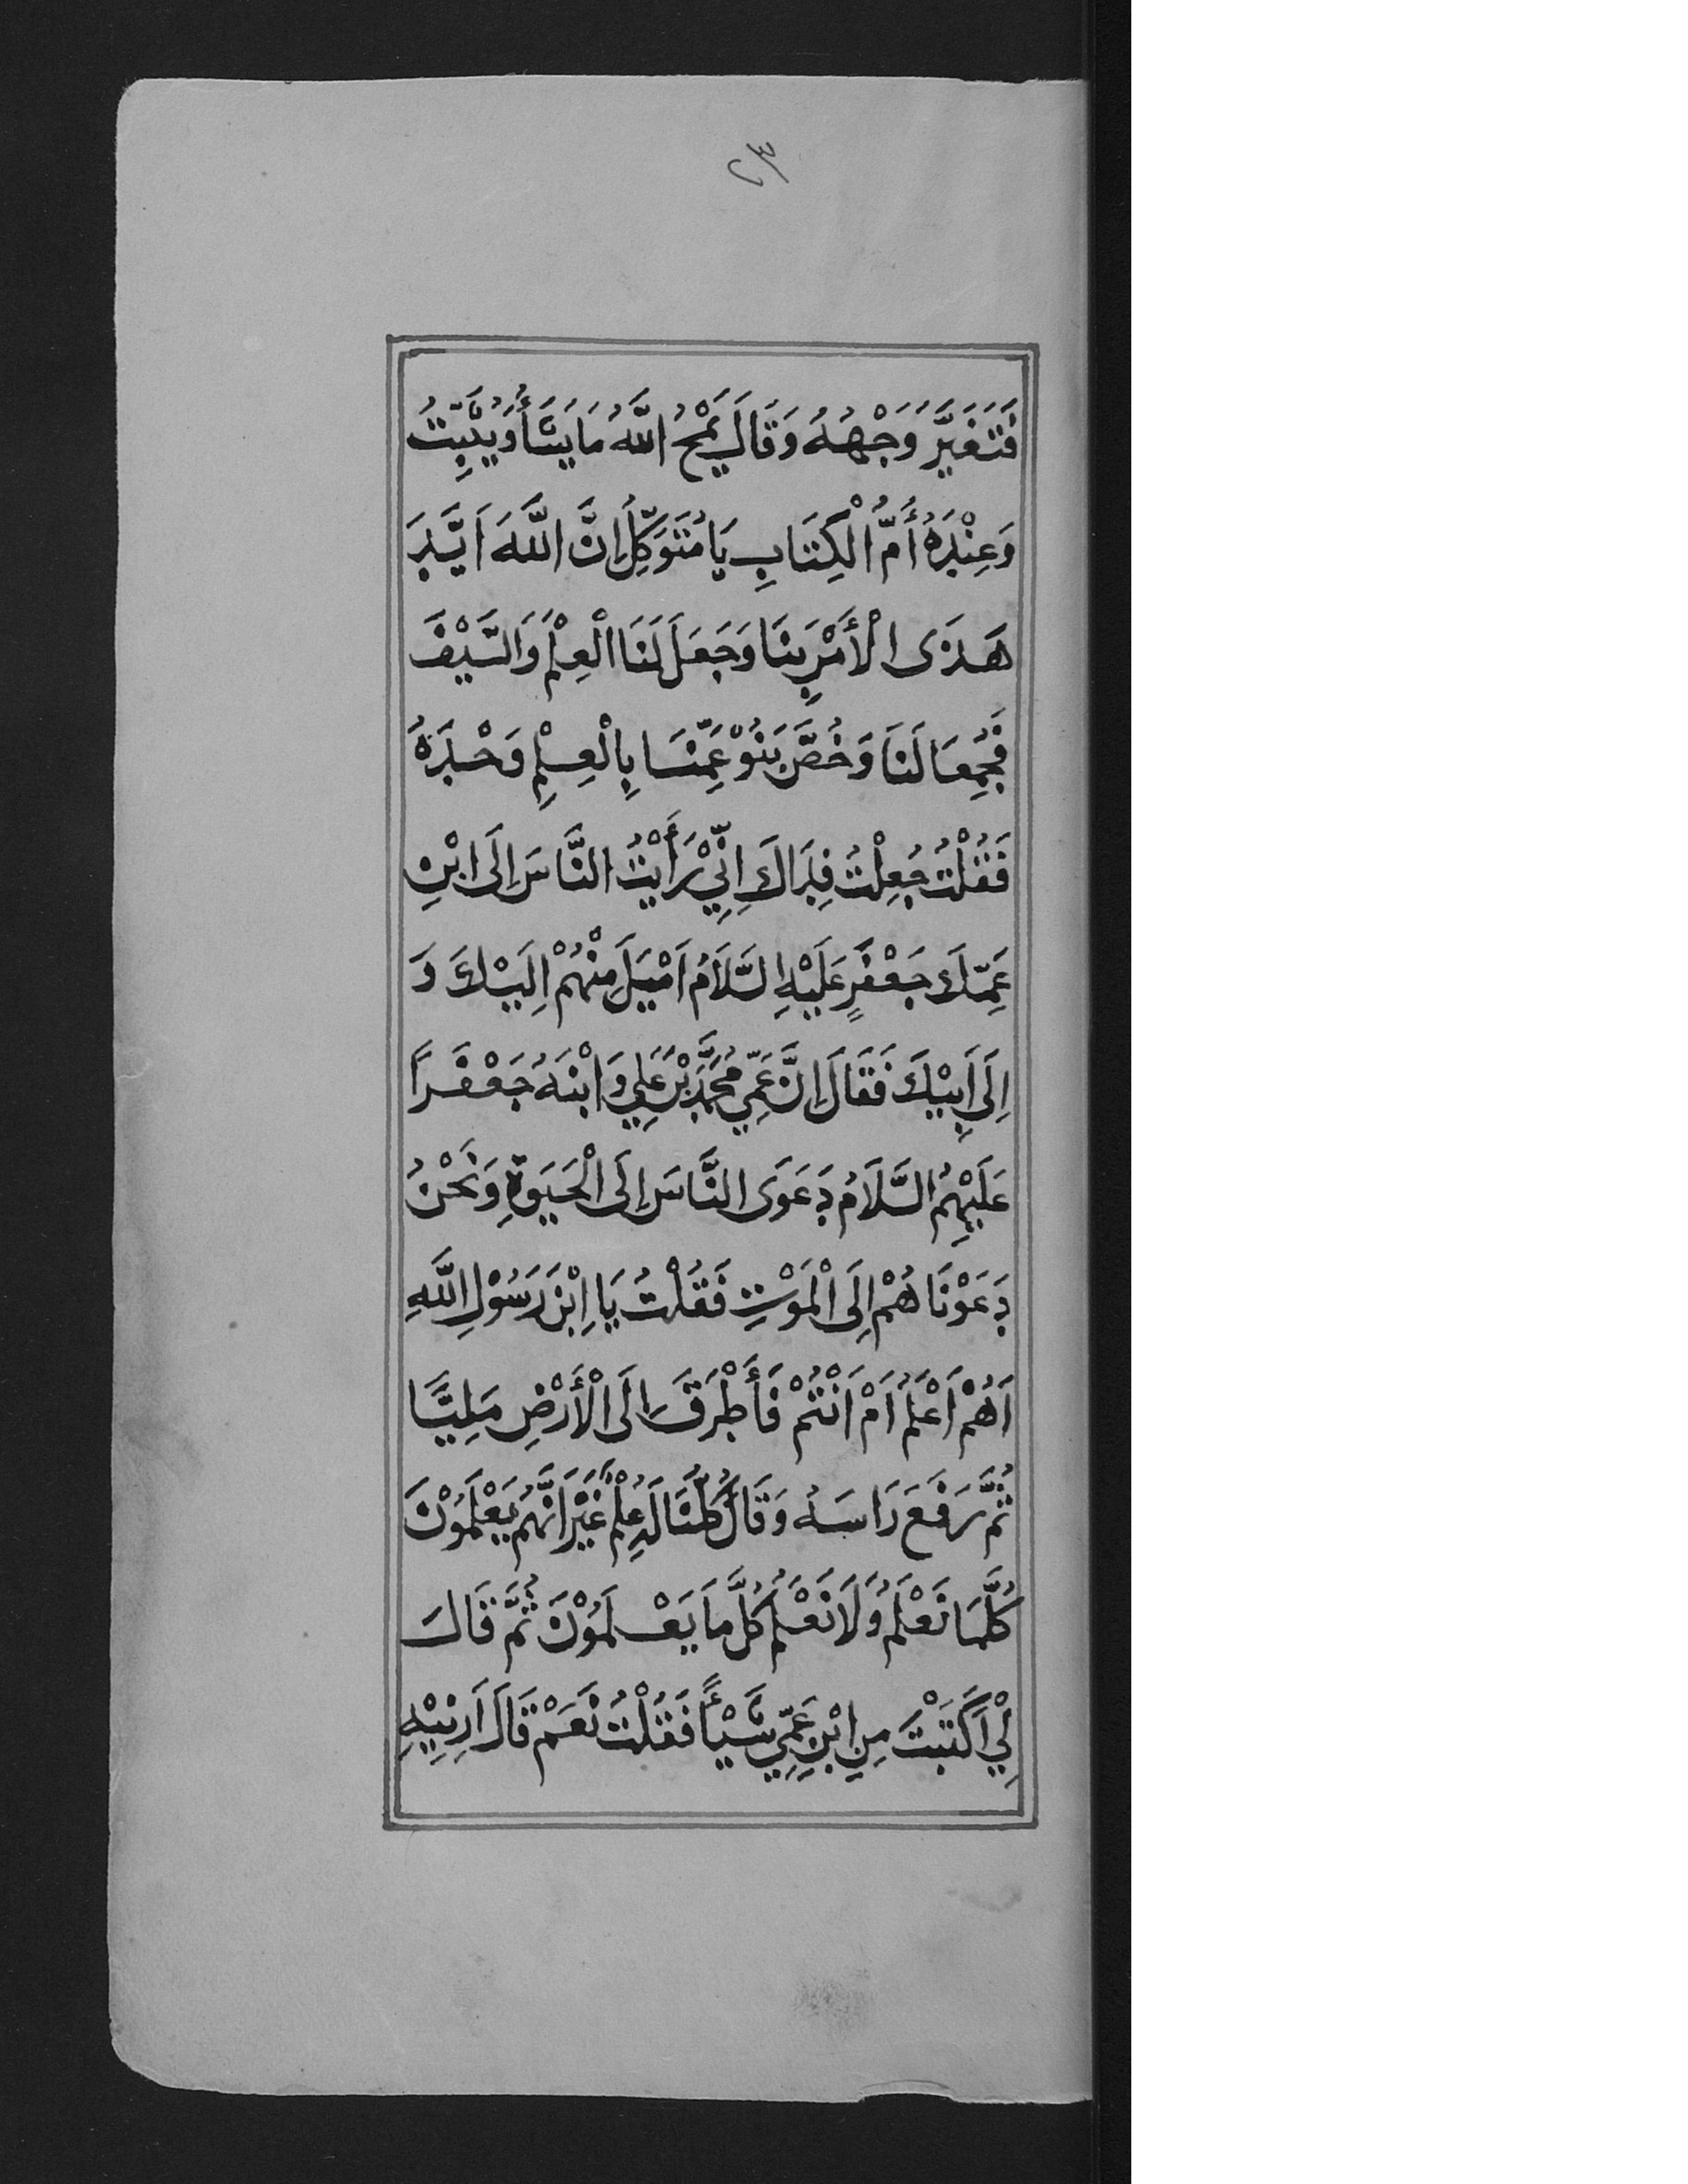 ٢٣
فَتَغَيَّرَ وَجْهُهُ وَقَالَ يَمْحُ اللَّهُ مَا يَشَأُ وَيُثَبِّتُ
وَعِنْدَهُ أُمُّ الْكِتَابِ يَا مُتَوَكِّلُ إِنَّ اللَّهَ اَيَّدَ
هَذَى الْأَمْرَ بِنَا وَجَعَلَ لَنَا الْعِلْمَ وَالسَّيْفَ
فَجُمِعَا لَنَا وَخُصَّ بَنُوْ عَمِّنَا بِالْعِلْمِ وَحْدَهُ
فَقُلْتُ جُعِلْتُ فِدَاكَ اِنِّيْ رَأَيْتُ النَّاسَ اِلَى ابْنِ
عَمِّكَ جَعْفَرٍ عَلَيْهِ السَّلَامُ اَمْيَلَ مِنْهُمْ اِلَيْكَ وَ
اِلَى اَبِيْكَ فَقَالَ اِنَّ عَمِّيْ مُحَمَّدَ بْنَ عَلِيٍ وَابْنَهُ جَعْفَرًا
عَلَيْهِمُ السَّلَامُ دَعَوَى النَّاسَ اِلَى الْحَيَوةِ وَنَحْنُ
دَعَوْنَاهُمْ اِلَى الْمَوْتِ فَقُلْتُ يَا اِبْنَ رَسُوْلِ اللَّهِ
اَهُمْ اَعْلَمُ اَمْ اَنْتُمْ فَأَطْرَقَ اِلَى الْأَرْضِ مَلِيًّا
ثُمَّ رَفَعَ رَاسَهُ وَقَالَ كُلُّنَا لَهُ عِلْمٌ غَيْرَ اَنَّهُمْ يَعْلَمُوْنَ
كُلَّمَا نَعْلَمُ وَلَا نَعْلَمُ كُلَّ مَا يَعْلَمُوْنَ ثُمَّ قَالَ
لِيْ اَكَتَبْتَ مِنِ ابْنِ عَمِّيْ شَيْأً فَقُلْتُ نَعَمْ قَالَ اَرِنِيْهِ